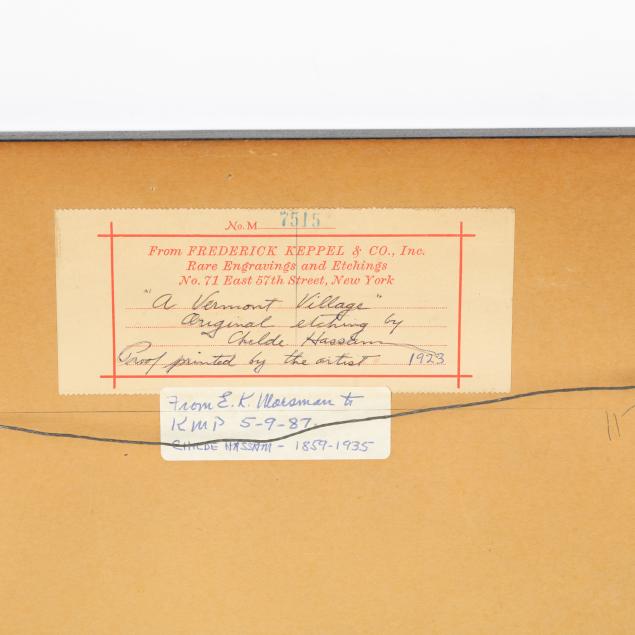 No. M 7515
From FREDERICK KEPPEL & CO., Inc.
Rare Engravings and Etchings
No. 71 East 57th Street, New York
"A Vermont Village"
Original etching by
Childe Hassam
Proof printed by the artist 1923
From E. K. Morsman to
KMP 5-9-87
CHILDE HASSAM - 1859-1935